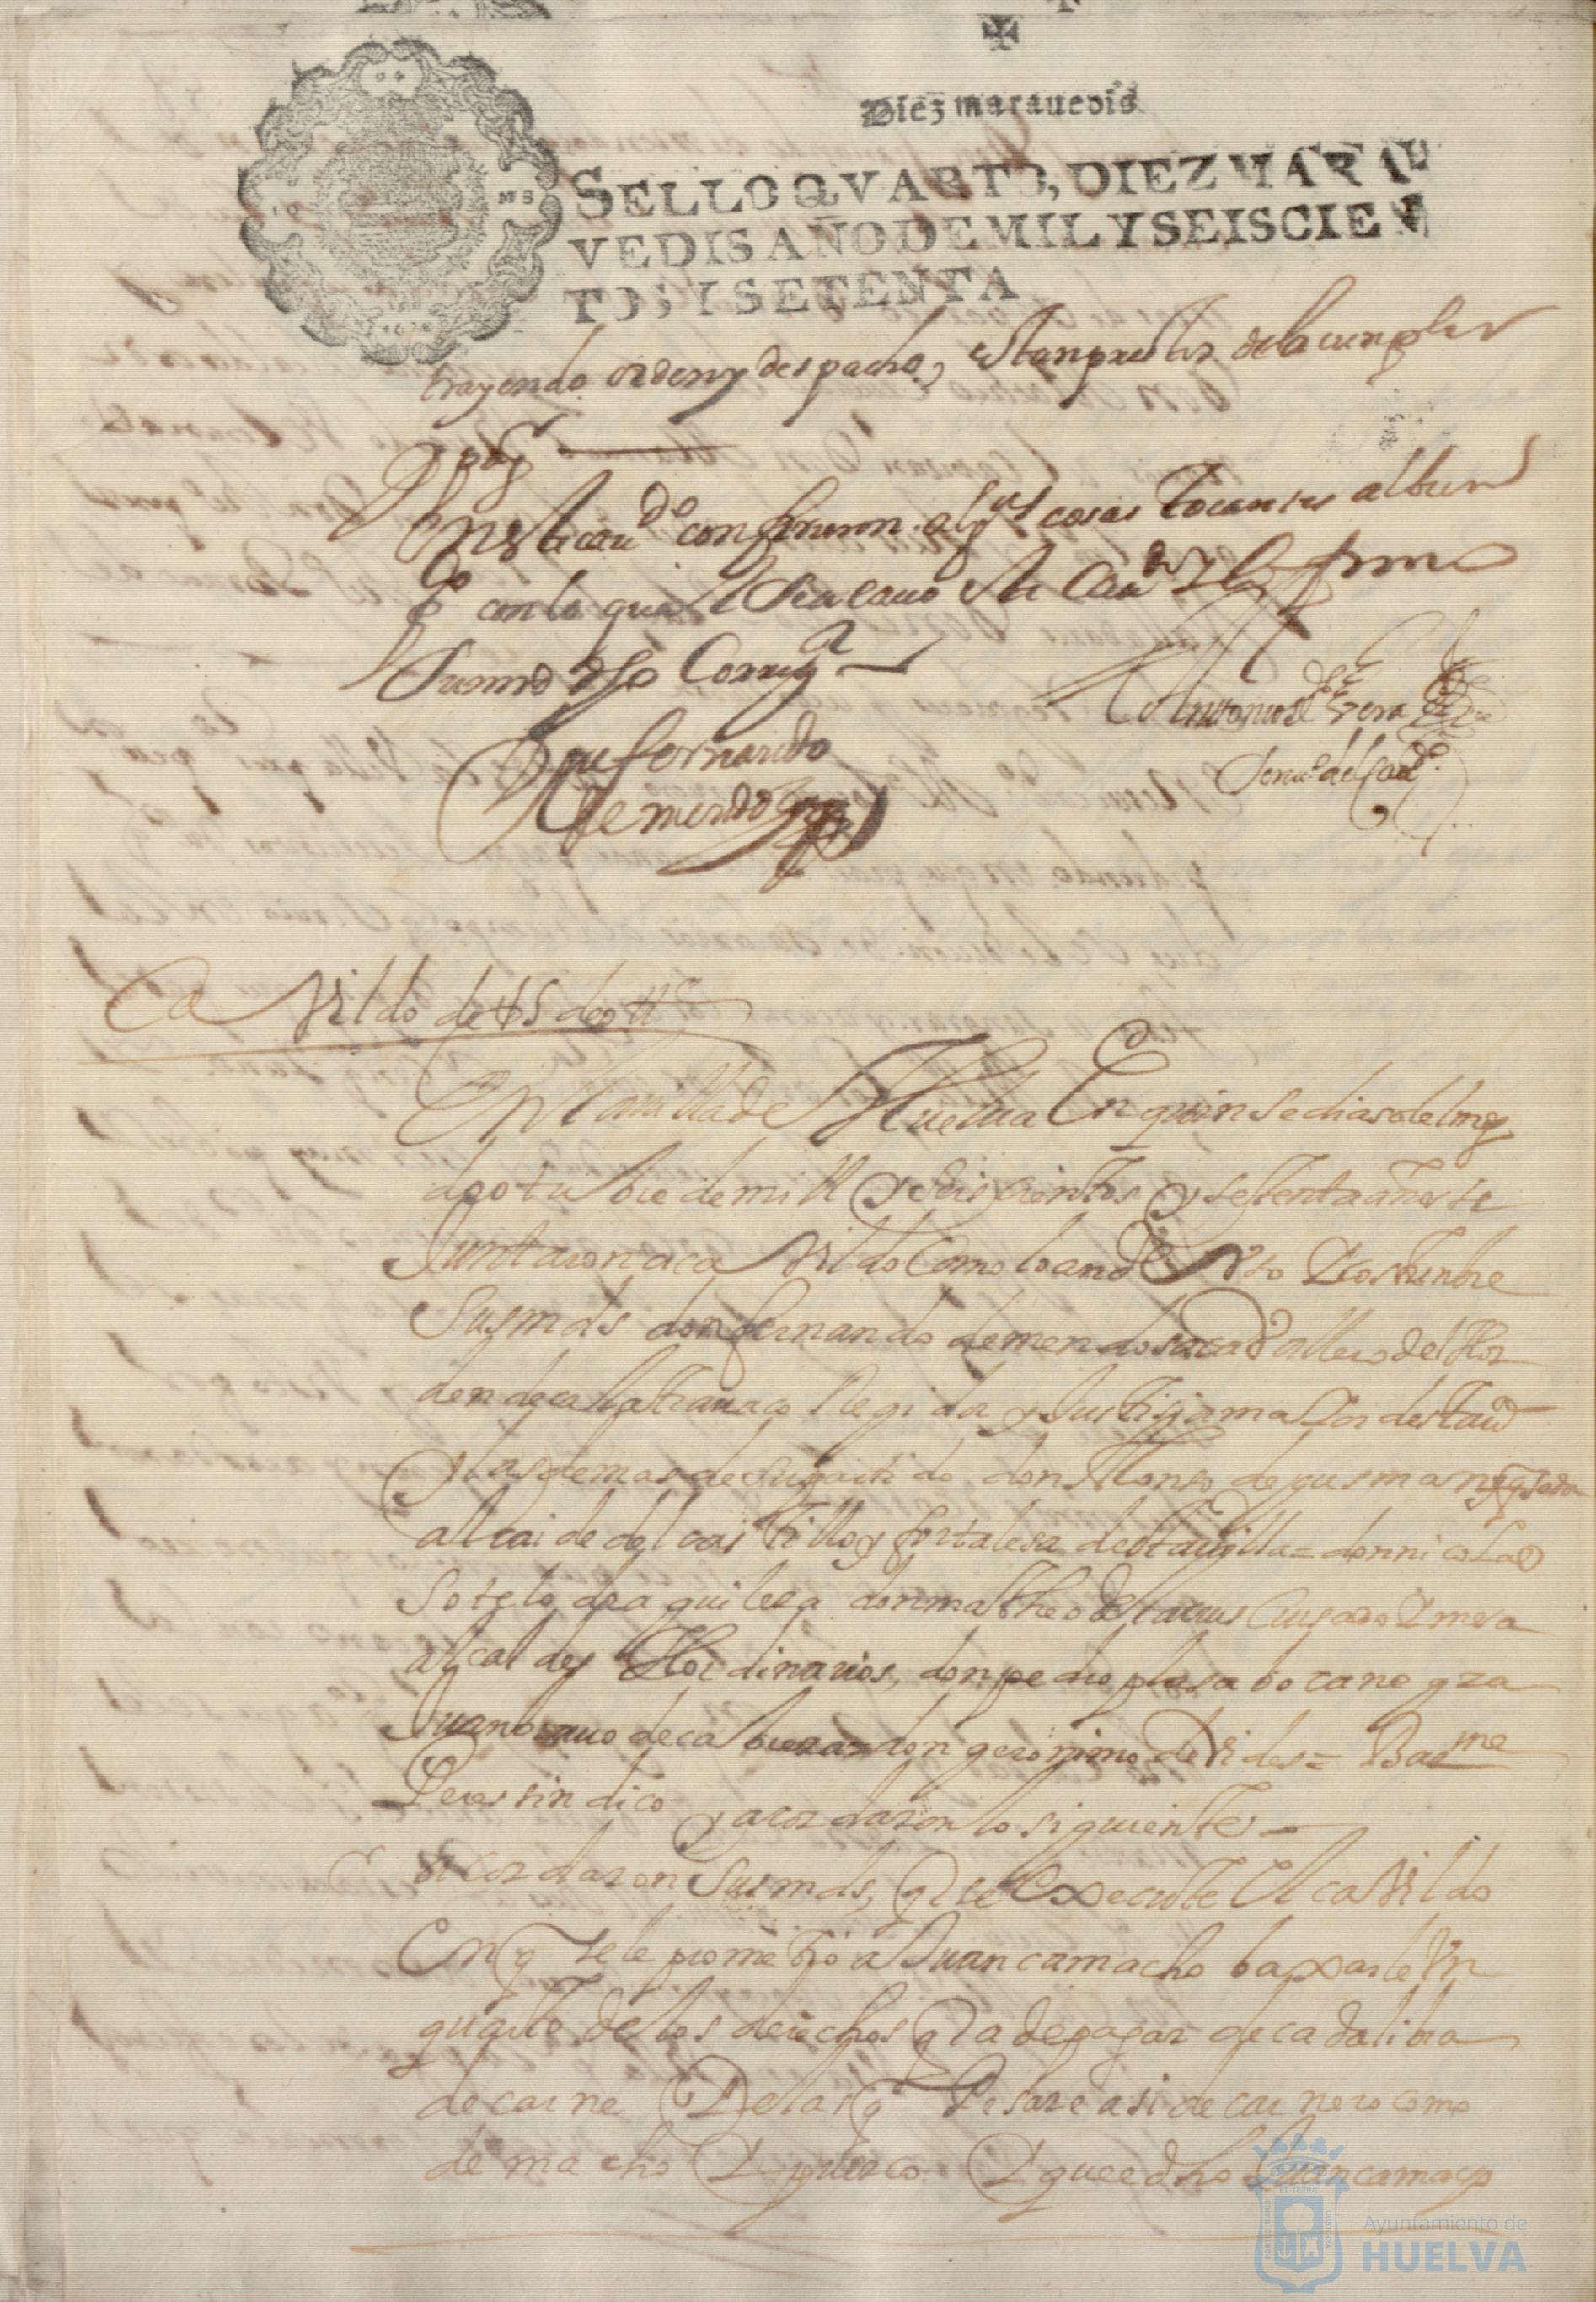 Diez marauedis
SELLO QVARTO, DIEZ MARAU
VEDIS AÑO DE MIL Y SEISCIEN
TOS Y SETENTA
trayendo orden y despacho, estan prestos de la cunplir
y pagar
En este caudo confirieron algus cosas tocantes al buen
Go con lo qual se acauo este Caudo y lo firmo
Su md dho Corregr
Don fernando
de mendoza
Antonio de
Scriuo del Caudo
Cavildo de 15 de 8re
En la villa de Huelua En quinse dias del mes
de otubre de mill y seiscientos y setenta años se
Juntaron a cavildo como lo an de Vso Y costunbre
Sus mds don fernando de mendosa cavallero del Hor
den de calatraua corregidor y Justisia maior desta va
y las demas de su partido don Alonso de gusman y quesada
alcaide del castillo y fortalesa desta villa = don nicolas
sotelo de aguilera don matheo de la crus Cursado Y mesa
alcaldes Hordinarios, don pedro plasa bocanegra
Juan brauo de cabrera = don geronimo de Vides = Barme
Peres sindico y acordaron lo siguiente =
acordaron sus mds, q se Execute El cavildo
En q se le prometio a Juan camacho baxarle Vn
quarto de los derechos q a de pagar de cada libra
de carne De las q Pesare asi de carnero como
de macho Y puerco Y que el dho Juan camacho
Ayuntamiento de
HUELVA